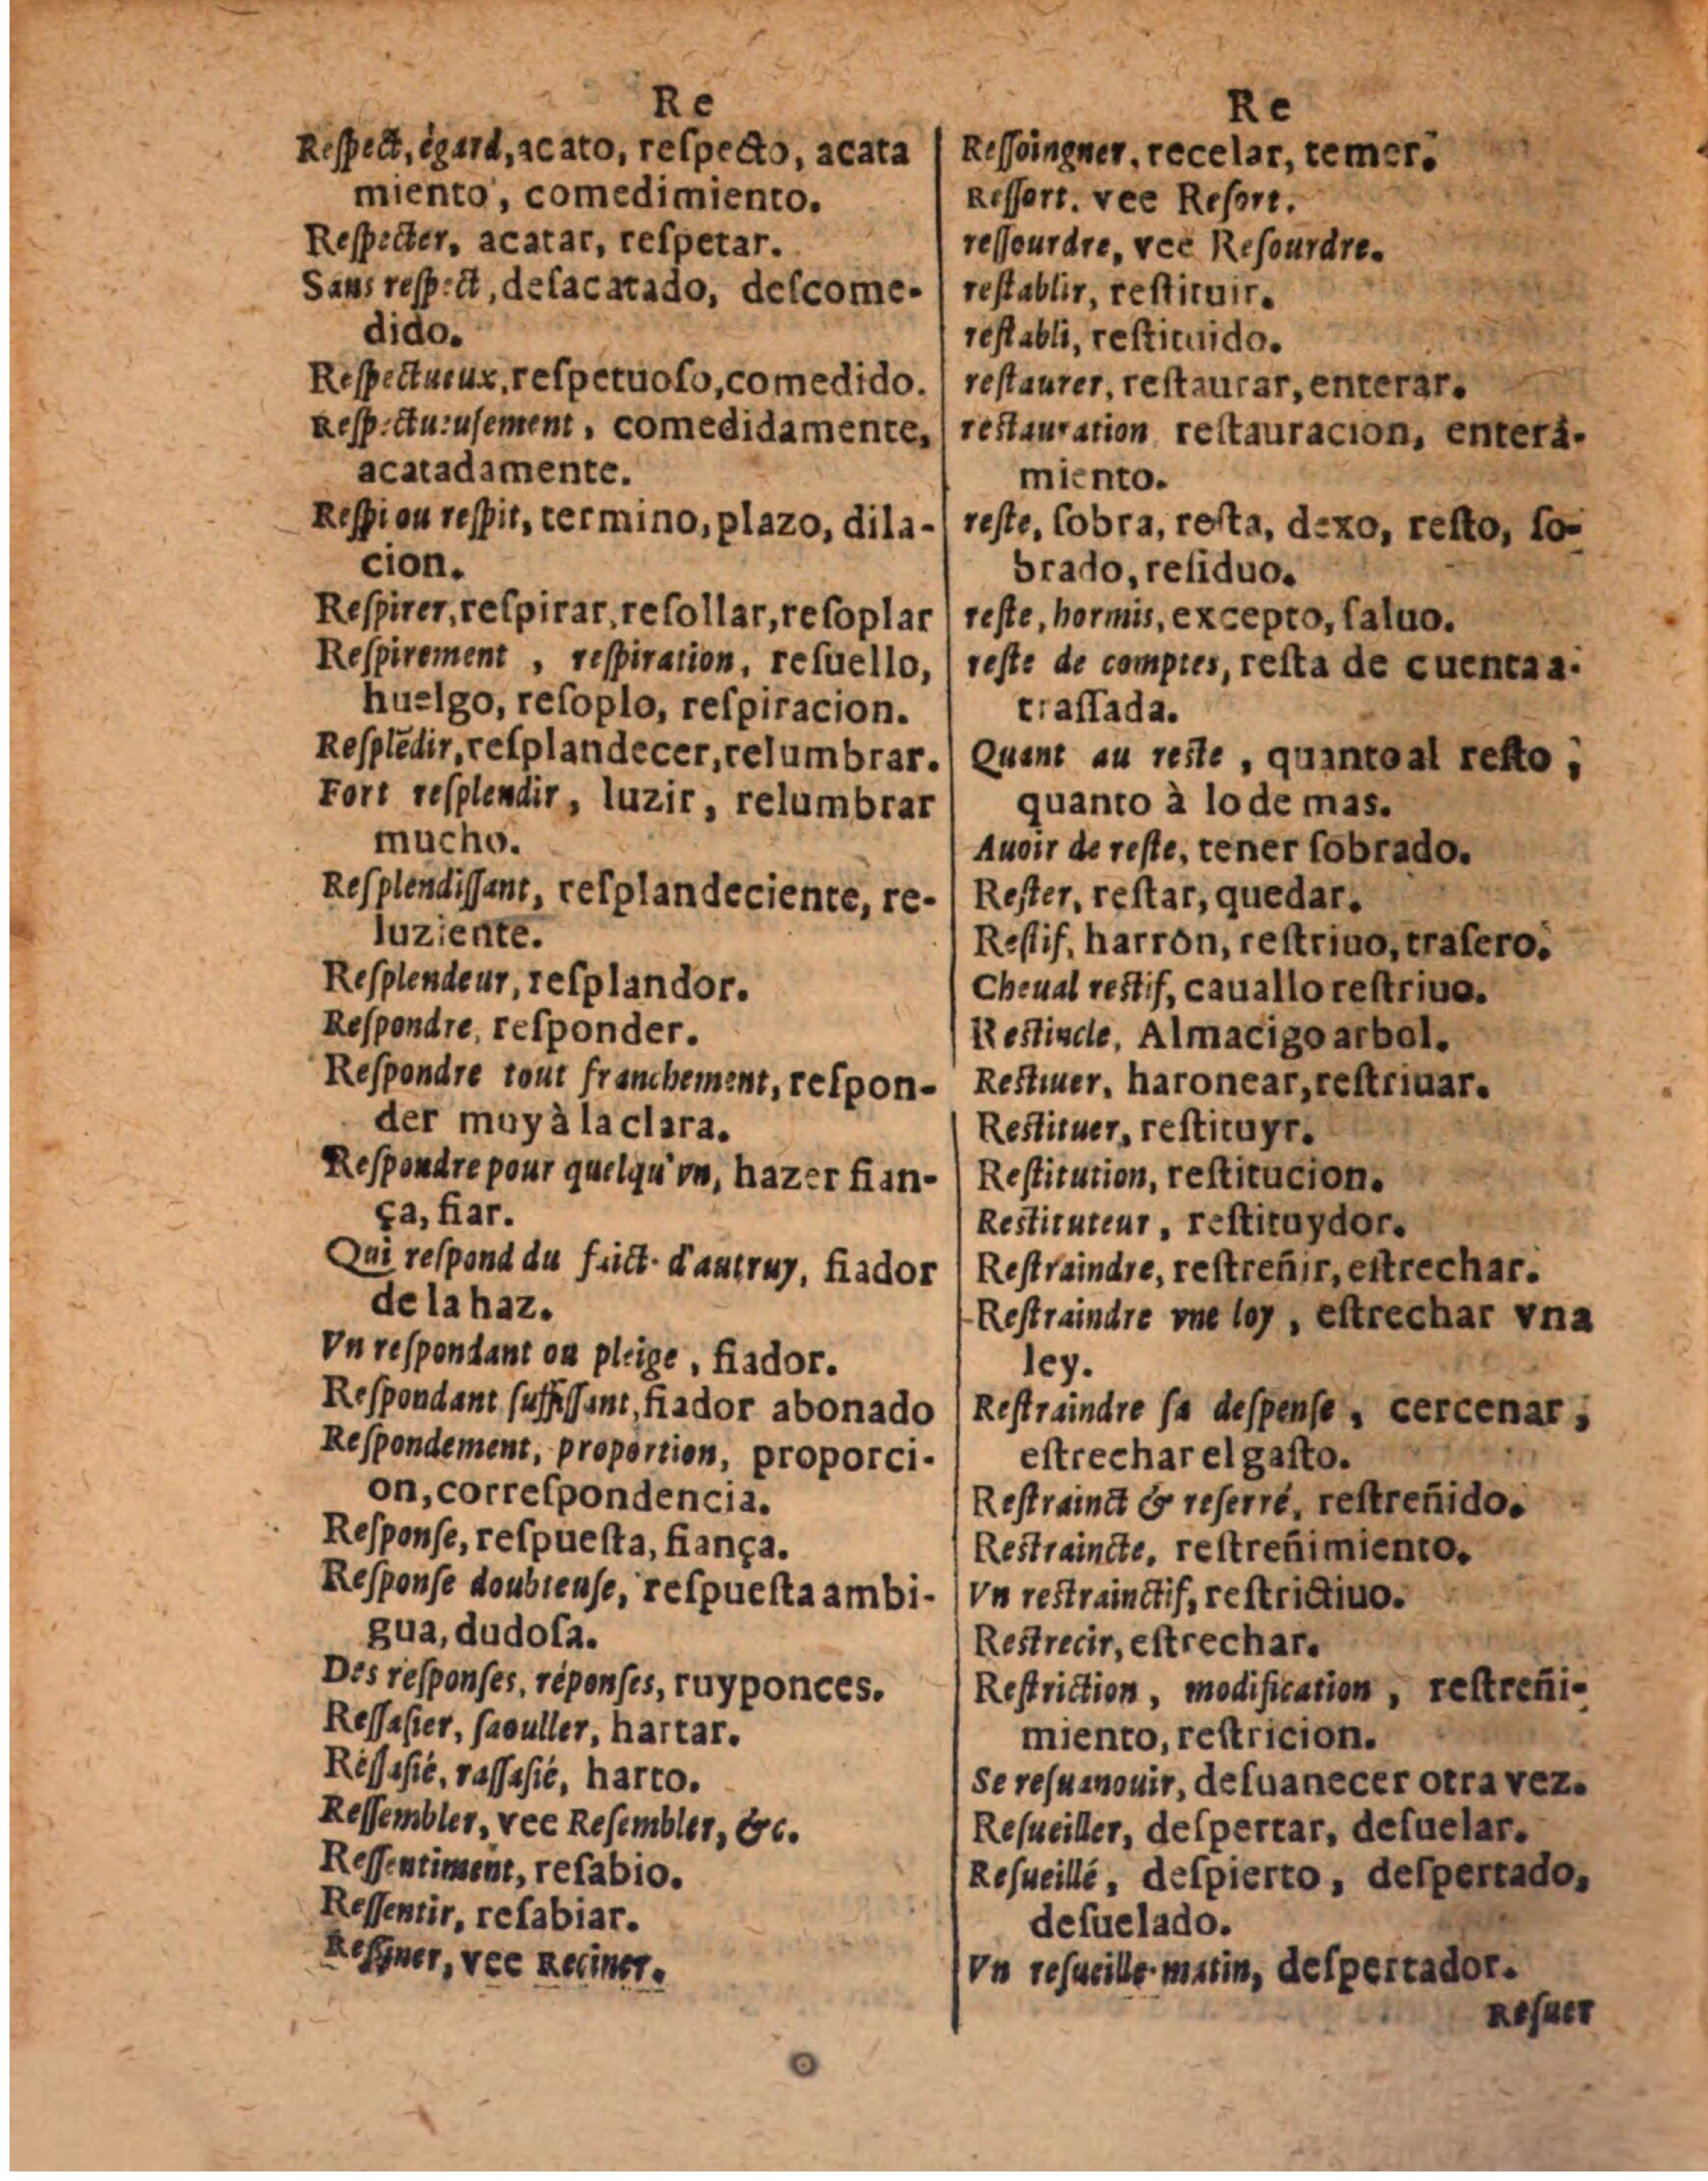 Re
Reſpect, égard, acato, reſpecto, acata
miento, comedimiento.
Reſpecter, acatar, reſpetar.
Sans reſpect, deſacatado, deſcome-
dido.
Reſpectueux, reſpetuoſo, comedido.
Reſpectueuſement, comedidamente,
acatadamente.
Reſpi ou reſpit, termino, plazo, dila-
cion.
Reſpirer, reſpirar, reſollar, reſoplar
Reſpirement, reſpiration, reſuello,
huelgo, reſoplo, reſpiracion.
Reſplẽdir, reſplandecer, relumbrar.
Fort reſplendir, luzir, relumbrar
mucho.
Reſplendiſſant, reſplandeciente, re-
luziente.
Reſplendeur, reſplandor.
Reſpondre, reſponder.
Reſpondre tout franchement, reſpon-
der muy à la clara.
Reſpondre pour quelqu'vn, hazer fian-
ça, fiar.
Qui reſpond du faict d'autruy, fiador
de la haz.
Vn reſpondant ou pleige, fiador.
Reſpondant ſuffiſſant, fiador abonado
Reſpondement, proportion, proporci-
on, correſpondencia.
Reſponſe, reſpueſta, fiança.
Reſponſe doubteuſe, reſpueſta ambi-
gua, dudoſa.
Des reſponſes, réponſes, ruyponces.
Reſſaſier, ſaouller, hartar.
Reſſaſié, raſſaſié, harto.
Reſſembler, vee Reſembler, &c.
Reſſentiment, reſabio.
Reſſentir, reſabiar.
Reſſiner, vee Reciner.
Re
Reſſoingner, recelar, temer.
Reſſort. vee Reſort.
reſſourdre, vee Reſourdre.
reſtablir, reſtituir.
reſtabli, reſtituido.
reſtaurer, reſtaurar, enterar.
reſtauration reſtauracion, enterá-
miento.
reſte, ſobra, reſta, dexo, reſto, ſo-
brado, reſiduo.
reſte, hormis, excepto, ſaluo.
reſte de comptes, reſta de cuenta a-
traſſada.
Quant au reſte, quanto al reſto,
quanto à lo de mas.
Auoir de reſte, tener ſobrado.
Reſter, reſtar, quedar.
Reſtif, harrón, reſtriuo, traſero.
Cheual reſtif, cauallo reſtriuo.
Reſtincle, Almacigo arbol.
Reſtiuer, haronear, reſtriuar.
Reſtituer, reſtituyr.
Reſtitution, reſtitucion.
Reſtituteur, reſtituydor.
Reſtraindre, reſtreñir, eſtrechar.
Reſtraindre vne loy, eſtrechar vna
ley.
Reſtraindre ſa deſpenſe, cercenar,
eſtrechar el gaſto.
Reſtrainct & reſerré, reſtreñido.
Reſtraincte, reſtreñimiento.
Vn reſtrainctif, reſtrictiuo.
Reſtrecir, eſtrechar.
Reſtriction, modification, reſtreñi-
miento, reſtricion.
Se reſuanouir, deſuanecer otra vez.
Reſueiller, deſpertar, deſuelar.
Reſueillé, deſpierto, deſpertado,
deſuelado.
Vn reſueille-matin, deſpertador.
Reſuer